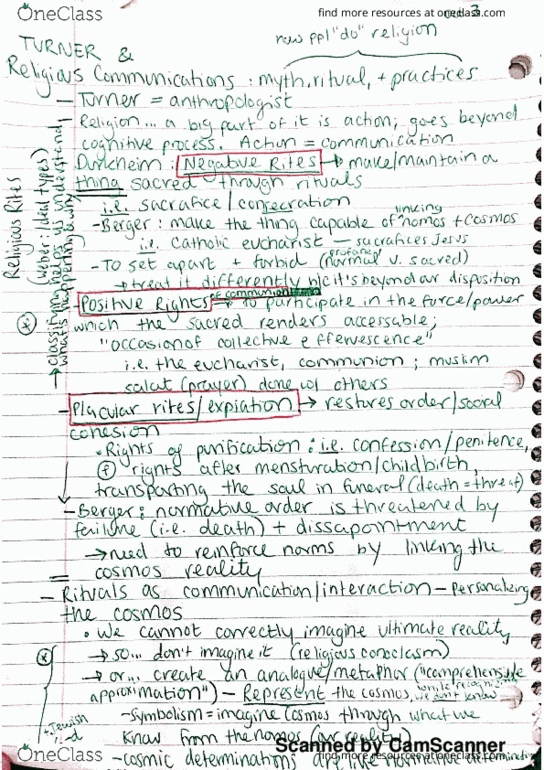 OneClass
find more resources at oneclass.com
3
how ppl "do" religion
TURNER &
Religious Communications : myth, ritual, + practices
- Turner = anthropologist
Religion... a big part of it is action; goes beyond
cognitive process. Action = communication
Durkheim : Negative Rites → make/maintain a
thing sacred through rituals
i.e. sacrafice / consecration
- Berger : make the thing capable of linking nomos + cosmos
i.e. Catholic eucharist — sacrafices Jesus
- To set apart + forbid (profane normal v. sacred)
→ treat it differently b/c it's beyond our disposition
- Positive Rights of communion → to participate in the force/power
which the sacred renders accessable;
"occasion of collective effervescence"
i.e. the eucharist, communion ; muslim
salat (prayer) done w/ others
- Piacular rites/expiation → restures order/social
cohesion
• Rights of purification : i.e. confession/penitence,
rights after mensturation/childbirth,
transporting the soul in funeral (death = threat)
- Berger : normative order is threatened by
failure (i.e. death) + dissapointment
→ need to reinforce norms by linking the
cosmos reality
- Rituals as communication/interaction - personalizing
the cosmos
• we cannot correctly imagine ultimate reality
→ so... don't imagine it (religious iconoclasm)
→ or... create an analogue/metaphor ("comprehensible
approximation") - Represent the cosmos, while recognizing we don't know
- Symbolism = imagine cosmos through what we
know from the nomos (our reality)
- cosmic determinations
Religious Rites
(Weber / Ideal types)
→ classifying helps us understand
what's happening
→ Jewish
OneClass
Scanned by CamScanner
find more resources at oneclass.com